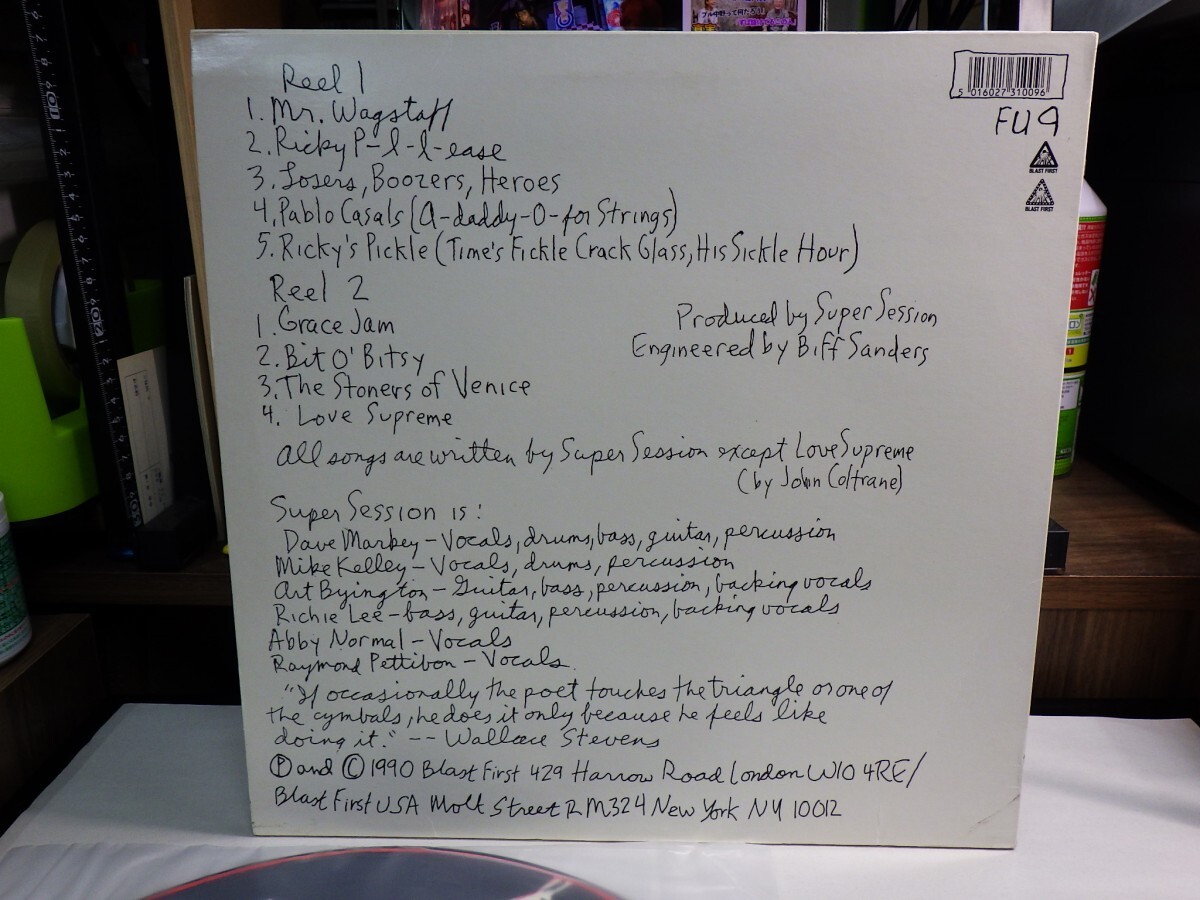 Reel 1
1. Mr. Wagstaff
2. Ricky P-l-l-ease
3. Losers, Boozers, Heroes
4. Pablo Casals (A-daddy-O-for Strings)
5. Ricky's Pickle (Time's Fickle Crack Glass, His Sickle Hour)
Reel 2
1. Grace Jam
2. Bit O' Bitsy
3. The Stoners of Venice
4. Love Supreme
Produced by Super Session
Engineered by Biff Sanders
All songs are written by Super Session except Love Supreme
(by John Coltrane)
Super Session is:
Dave Markey - Vocals, drums, bass, guitar, percussion
Mike Kelley - Vocals, drums, percussion
Art Byington - Guitar, bass, percussion, backing vocals
Richie Lee - bass, guitar, percussion, backing vocals
Abby Normal - Vocals
Raymond Pettibon - Vocals.
"If occasionally the poet touches the triangle or one of
the cymbals, he does it only because he feels like
doing it." -- Wallace Stevens
Ⓟ and © 1990 Blast First 429 Harrow Road London W10 4RE/
Blast First USA Mott Street RM324 New York NY 10012
5 016027 310096
FU 9
BLAST FIRST
BLAST FIRST